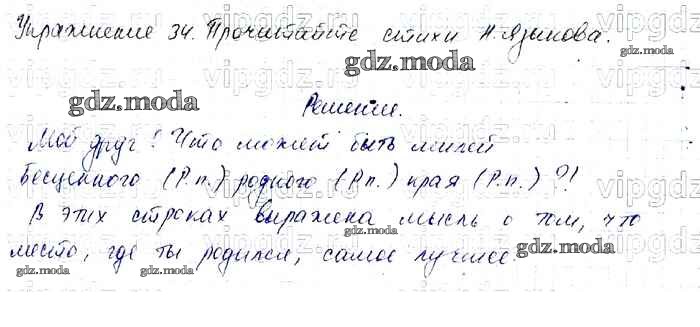 Упражнение 34. Прочитайте стихи Н. Языкова.
gdz.moda
gdz.moda
Решение.
Мой друг! Что может быть милей
Бесценного (Р.п.) родного (Р.п.) края (Р.п.)?!
В этих строках выражена мысль о том, что
gdz.moda
место, где ты родился, самое лучшее.
gdz.moda gdz.moda gdz.moda